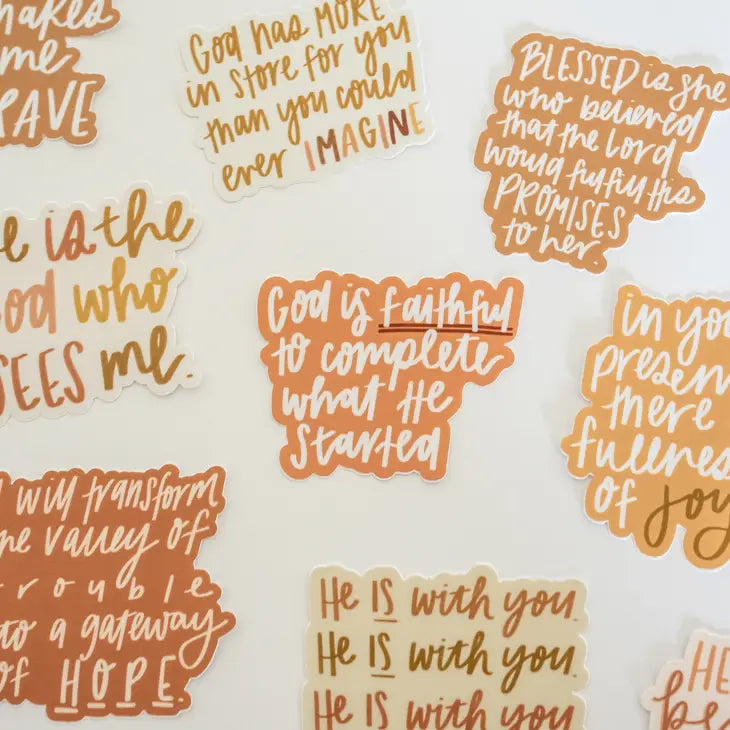 makes
me
BRAVE
God has MORE
in store for you
than you could
ever IMAGINE
BLESSED is she
who believed
that the Lord
would fulfill His
PROMISES
to her.
is the
God who
SEES me.
God is faithful
to complete
what He
started
in you
presen
there
fullness
of joy
I will transform
the valley of
trouble
to a gateway
of HOPE.
He IS with you.
He IS with you.
He IS with you
HE
be